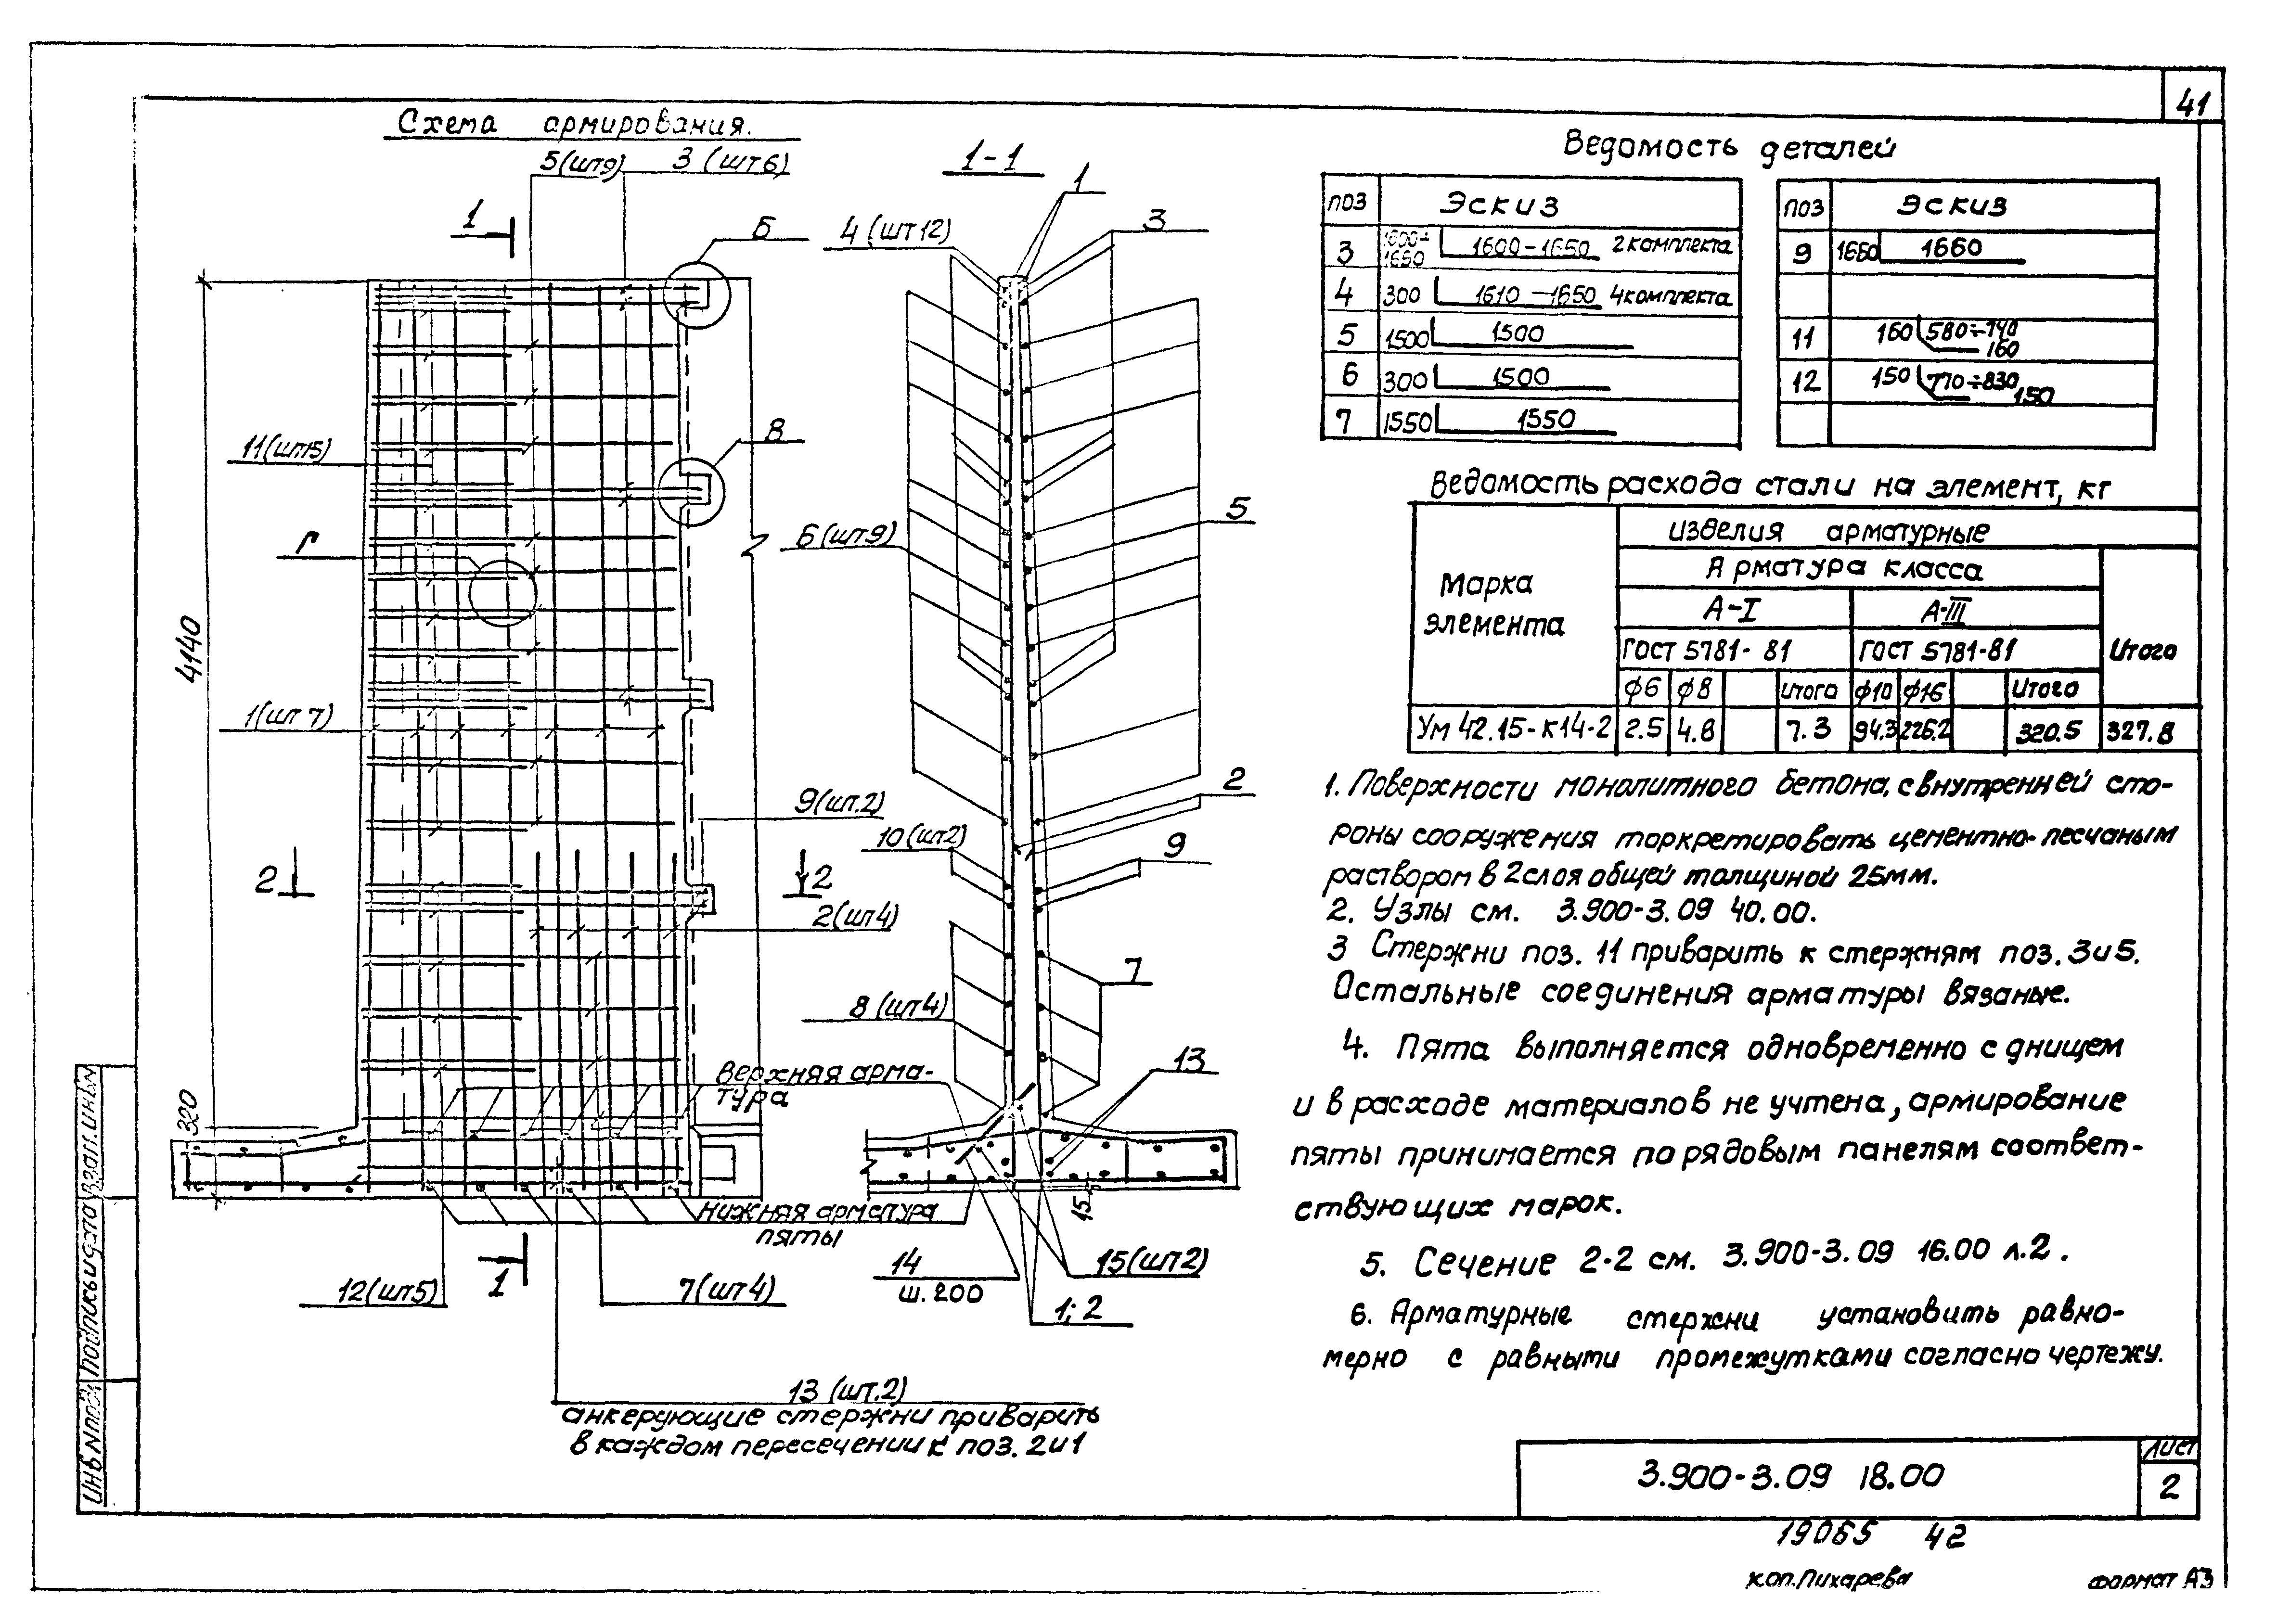 41
Схема армирования.
5(шт9) 3 (шт6)
1
Б
11(шт5)
В
Г
4140
1(шт 7)
9(шт.2)
2 2
2(шт4)
320
Верхняя арма-
тура
Нижняя арматура
пяты
12(шт5)
1
7(шт4)
13 (шт.2)
анкерующие стержни приварить
в каждом пересечении к поз. 2и1
1-1
1
4 (шт12)
3
6(шт9)
5
2
10(шт2)
9
8 (шт4)
7
13
15
14
ш. 200
15(шт2)
1; 2
Ведомость деталей
поз Эскиз
3 1600÷1650 1600-1650 2комплекта
4 300 1610-1650 4комплекта
5 1500 1500
6 300 1500
7 1550 1550
поз Эскиз
9 1660 1660
11 160 580÷740 160
12 150 770÷830 150
Ведомость расхода стали на элемент, кг
Марка
элемента
изделия арматурные
Арматура класса
А-I А-III
ГОСТ 5781-81 ГОСТ 5781-81 Итого
ф6 ф8 итого ф10 ф16 Итого
Ум 42.15-К14-2 2.5 4.8 7.3 94.3 226.2 320.5 327.8
1. Поверхности монолитного бетона, с внутренней сто-
роны сооружения торкретировать цементно-песчаным
раствором в 2 слоя общей толщиной 25мм.
2. Узлы см. 3.900-3.09 40.00.
3 Стержни поз. 11 приварить к стержням поз. 3и5.
Остальные соединения арматуры вязаные.
4. Пята выполняется одновременно с днищем
и в расходе материалов не учтена, армирование
пяты принимается по рядовым панелям соответ-
ствующих марок.
5. Сечение 2-2 см. 3.900-3.09 16.00 л.2.
6. Арматурные стержни установить равно-
мерно с равными промежутками согласно чертежу.
Инв N подл. Подпись и дата Взам. инв N
3.900-3.09 18.00
Лист
2
19065 42
коп. Пихарева
формат А3